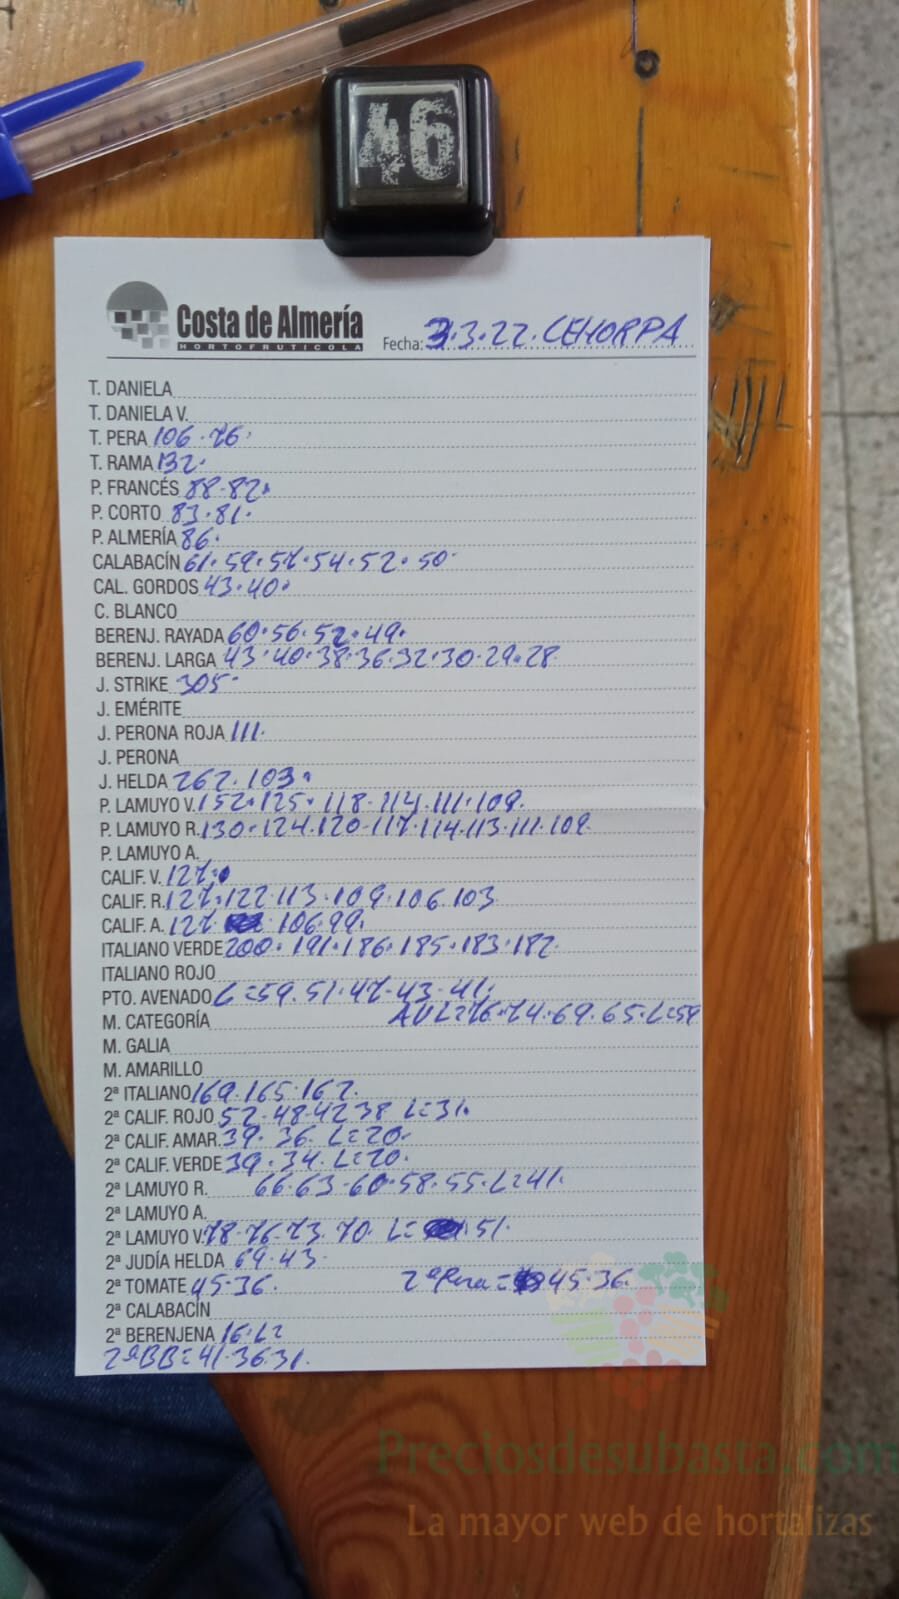 46
Costa de Almería
HORTOFRUTICOLA
Fecha: 3.3.22. CEHORPA
T. DANIELA
T. DANIELA V.
T. PERA 106.76.
T. RAMA 132.
P. FRANCÉS 88.82.
P. CORTO 83.81.
P. ALMERÍA 86.
CALABACÍN 61.59.57.54.52.50
CAL. GORDOS 43.40.
C. BLANCO
BERENJ. RAYADA 60.56.52.49.
BERENJ. LARGA 43.40.38.36.32.30.29.28
J. STRIKE 305
J. EMÉRITE
J. PERONA ROJA 111.
J. PERONA
J. HELDA 262.103.
P. LAMUYO V. 152.125.118.114.111.109.
P. LAMUYO R. 130.124.120.117.114.113.111.109
P. LAMUYO A.
CALIF. V. 127.
CALIF. R. 127.122.113.109.106.103
CALIF. A. 127 106.99.
ITALIANO VERDE 200.191.186.185.183.182
ITALIANO ROJO
PTO. AVENADO L=59.51.47.43.41.
M. CATEGORÍA AVL=76.74.69.65.L=59
M. GALIA
M. AMARILLO
2ª ITALIANO 169.165.162.
2ª CALIF. ROJO 52.48.42 38 L=31.
2ª CALIF. AMAR. 39.36. L=20.
2ª CALIF. VERDE 39.34.L=20.
2ª LAMUYO R. 66.63.60.58.55.L=41.
2ª LAMUYO A.
2ª LAMUYO V. 78.76.73.70. L= 51.
2ª JUDÍA HELDA 69.43
2ª TOMATE 45.36. 2ª Pera = 45.36.
2ª CALABACÍN
2ª BERENJENA 16.L=
2ªBB=41.36.31.
Preciosdesubasta.com
La mayor web de hortalizas